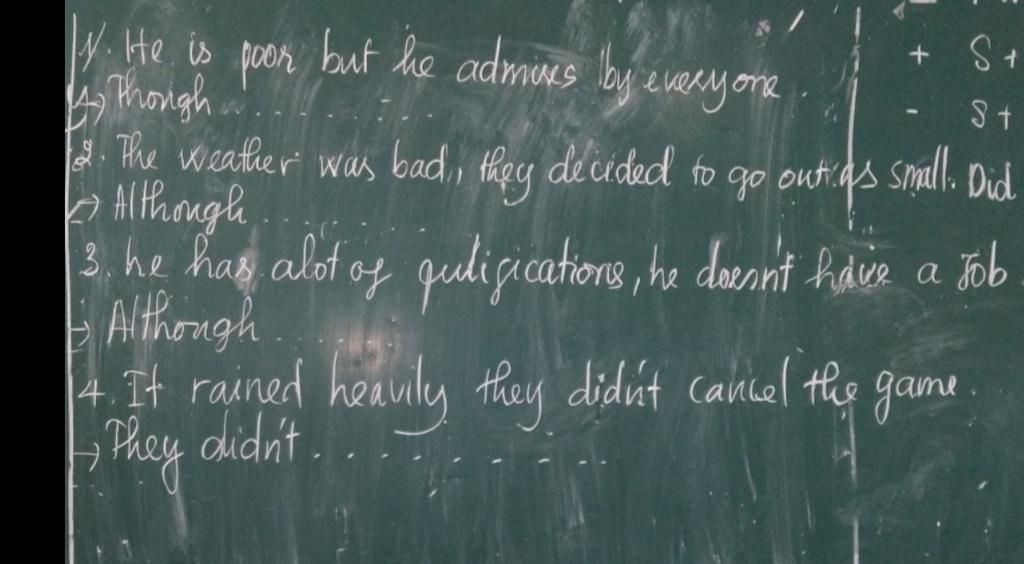 1. He is poor but he admires by everyone.
→ Though . . . . . . . . .
2. The weather was bad, they decided to go out as small. Did
→ Although . . . . . . . . .
3. he has alot of qulifications, he doesn't have a Job
→ Although . . . . . . .
4. It rained heavily they didn't cancel the game.
→ They didn't . . . . . . . . . .
+ S +
- S +